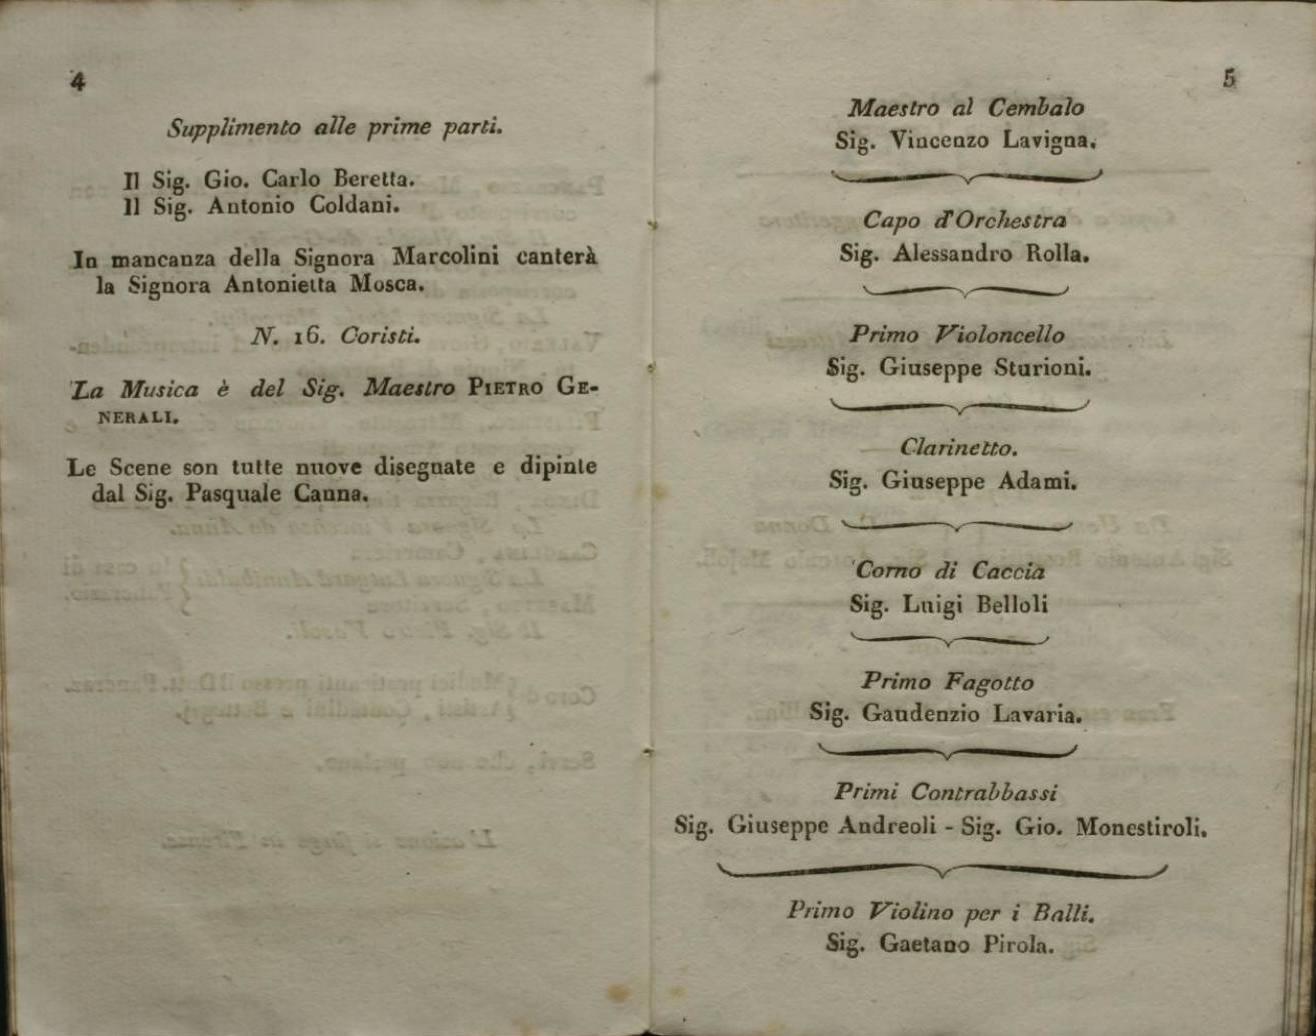 4
Supplimento alle prime parti.
Il Sig. Gio. Carlo Beretta.
Il Sig. Antonio Coldani.
In mancanza della Signora Marcolini canterà
la Signora Antonietta Mosca.
N. 16. Coristi.
La Musica è del Sig. Maestro PIETRO GE-
NERALI.
Le Scene son tutte nuove disegnate e dipinte
dal Sig. Pasquale Canna.
5
Maestro al Cembalo
Sig. Vincenzo Lavigna.
Capo d'Orchestra
Sig. Alessandro Rolla.
Primo Violoncello
Sig. Giuseppe Sturioni.
Clarinetto.
Sig. Giuseppe Adami.
Corno di Caccia
Sig. Luigi Belloli
Primo Fagotto
Sig. Gaudenzio Lavaria.
Primi Contrabbassi
Sig. Giuseppe Andreoli - Sig. Gio. Monestiroli.
Primo Violino per i Balli.
Sig. Gaetano Pirola.